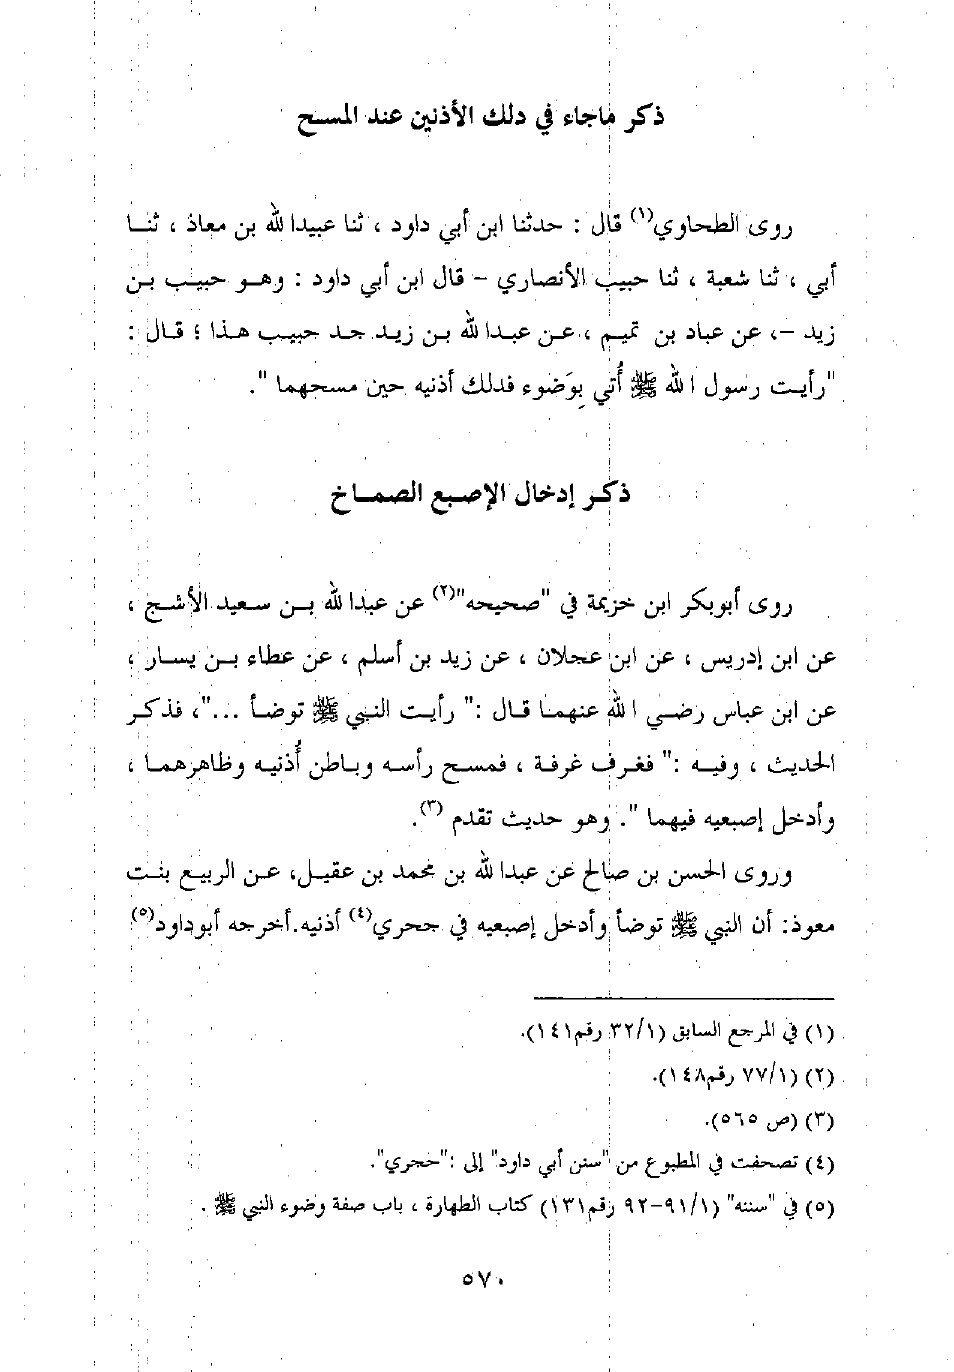 ذكر ماجاء في دلك الأذنين عند المسح
روى الطحاوي(١) قال : حدثنا ابن أبي داود ، ثنا عبيدا لله بن معاذ ، ثنا
أبي ، ثنا شعبة ، ثنا حبيب الأنصاري – قال ابن أبي داود : وهو حبيب بن
زيد –، عن عباد بن تميم ، عن عبدا لله بن زيد جد حبيب هذا ؛ قال :
"رأيت رسول ا لله ﷺ أُتي بِوَضوء فدلك أذنيه حين مسحهما ".
ذكر إدخال الإصبع الصماخ
روى أبوبكر ابن خزيمة في "صحيحه"(٢) عن عبدا لله بن سعيد الأشج ،
عن ابن إدريس ، عن ابن عجلان ، عن زيد بن أسلم ، عن عطاء بن يسار ،
عن ابن عباس رضي ا لله عنهما قال :" رأيت النبي ﷺ توضأ ..."، فذكر
الحديث ، وفيه :" فغرف غرفة ، فمسح رأسه وباطن أُذنيه وظاهرهما ،
وأدخل إصبعيه فيهما ". وهو حديث تقدم (٣).
وروى الحسن بن صالح عن عبدا لله بن محمد بن عقيل، عن الربيع بنت
معوذ: أن النبي ﷺ توضأ وأدخل إصبعيه في جحري(٤) أذنيه.أخرجه أبوداود(٥)
(١) في المرجع السابق (٣٢/١ رقم١٤١).
(٢) (٧٧/١ رقم١٤٨).
(٣) (ص ٥٦٥).
(٤) تصحفت في المطبوع من "سنن أبي داود" إلى :"حجري".
(٥) في "سننه" (٩١/١–٩٢ رقم١٣١) كتاب الطهارة ، باب صفة وضوء النبي ﷺ .
٥٧٠